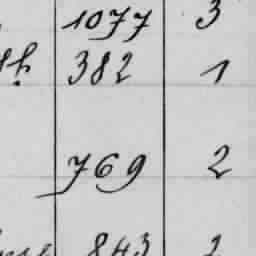 1077 3
382 1
769 2
843 2